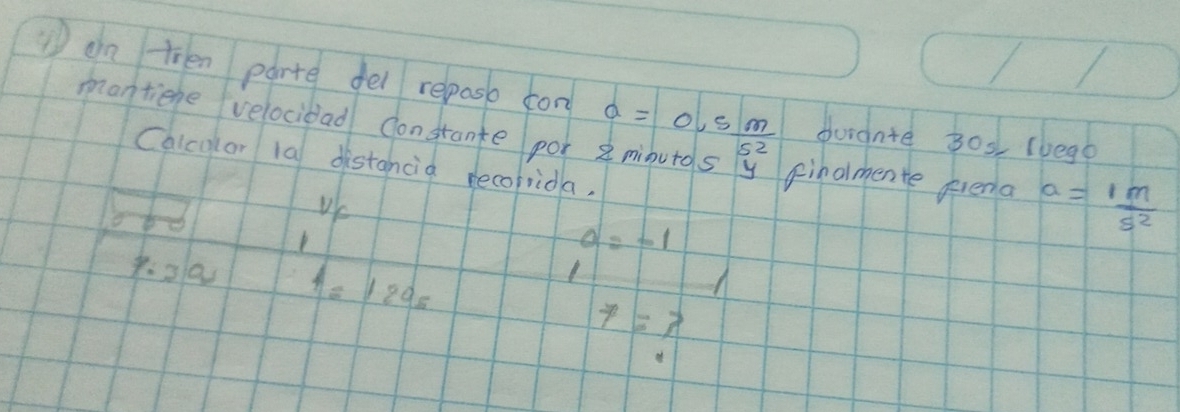 4) Un tren parte del reposo con a = 0,5 m/s² durante 30s luego
mantiene velocidad constante por 2 minutos y finalmente frena a = 1 m/s²
Calcular la distancia recorrida.
Vc
a = -1
t = 30
t = 120s
t = ?